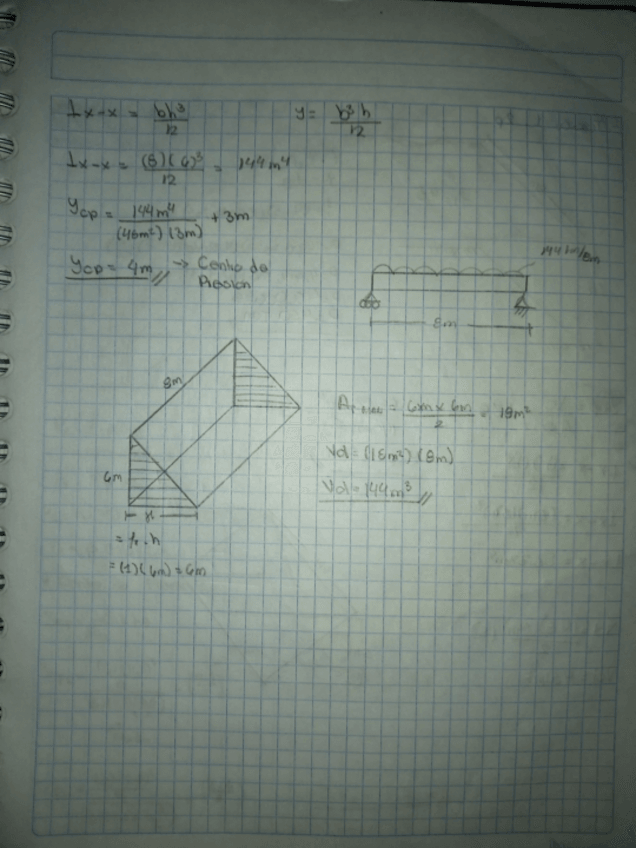 Ix-x = bh³/12    y = b³h/12
Ix-x = (8)(6)³/12 = 144 m⁴
Ycp = 144m⁴/(48m²)(3m) + 3m
Ycp = 4m → Centro de
Presion
8m
8m
6m
x
= γ.h
= (1)(6m) = 6m
= 6m x 6m/2 = 18m²
Vol = (18m²)(8m)
Vol = 144m³